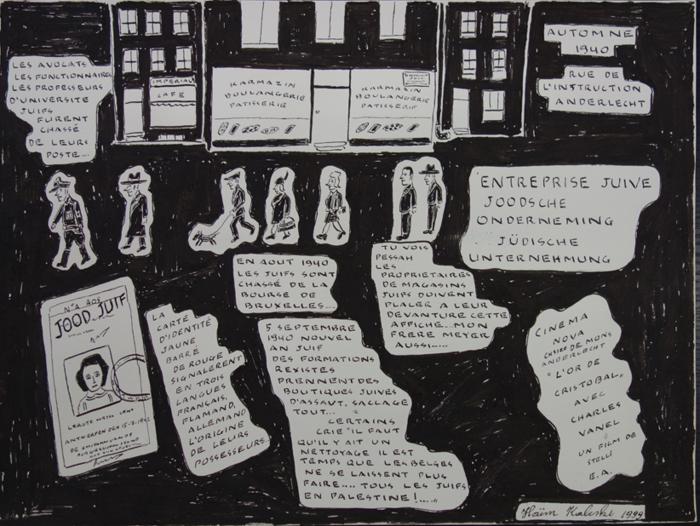 LES AVOCATS
LES FONCTIONNAIRES
LES PROFESSEURS
D'UNIVERSITÉ
JUIFS
FURENT
CHASSÉ
DE LEURS
POSTE...
IMPERIAL
CAFE
KARMAZIN
BOULANGERIE
PATISSERIE
KARMAZIN
BOULANGERIE
PATISSERIE
AUTOMNE
1940
RUE DE
L'INSTRUCTION
ANDERLECHT
ENTREPRISE JUIVE
JOODSCHE
ONDERNEMING
JÜDISCHE
UNTERNEHMUNG
EN AOUT 1940
LES JUIFS SONT
CHASSÉ DE LA
BOURSE DE
BRUXELLES...
TU VOIS
PESSAH
LES
PROPRIETAIRES
DE MAGASINS
JUIFS DOIVENT
PLACER A LEUR
DEVANTURE CETTE
AFFICHE...MON
FRERE MEYER
AUSSI.....
JOOD-JUIF
LA
CARTE
D'IDENTITÉ
JAUNE
BARRÉ
DE ROUGE
SIGNALERENT
EN TROIS
LANGUES
FRANÇAIS,
FLAMAND,
ALLEMAND
L'ORIGINE
DE LEURS
POSSESSEURS.
5 SEPTEMBRE
1940 NOUVEL
AN JUIF
DES FORMATIONS
REXISTES
PRIENNENT DES
BOUTIQUES JUIVES
D'ASSAUT, SACCAGE
TOUT...
CERTAINS
CRIE "IL FAUT
QU'IL Y AIT UN
NETTOYAGE IL EST
TEMPS QUE LES BELGES
NE SE LAISSENT PLUS
FAIRE.... TOUS LES JUIFS
EN PALESTINE!.....
CINEMA
NOVA
CHSEE DE MONS
ANDERLECHT
"L'OR DE
CRISTOBAL,
AVEC
CHARLES
VANEL
UN FILM DE
STELLI
E.A.
Haïm Kaliski 1999